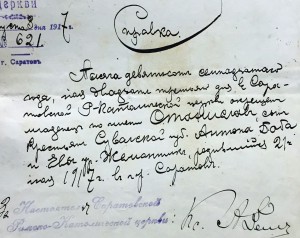 Церкви
1917
№ 621.
г. Саратовъ
Справка.
девятьсотъ семнадцатаго
года, мая двадцать третьяго дня, въ Сара-
товской Р-Католической церкви окрещенъ
младенецъ по имени Станиславъ сынъ
крестьянъ Сувалкской губ. Антона
и Евы родившійся 21
мая 1917 г. въ гор. Саратовѣ.
Настоятель Саратовской
Римско-Католической церкви:
Кс. А.